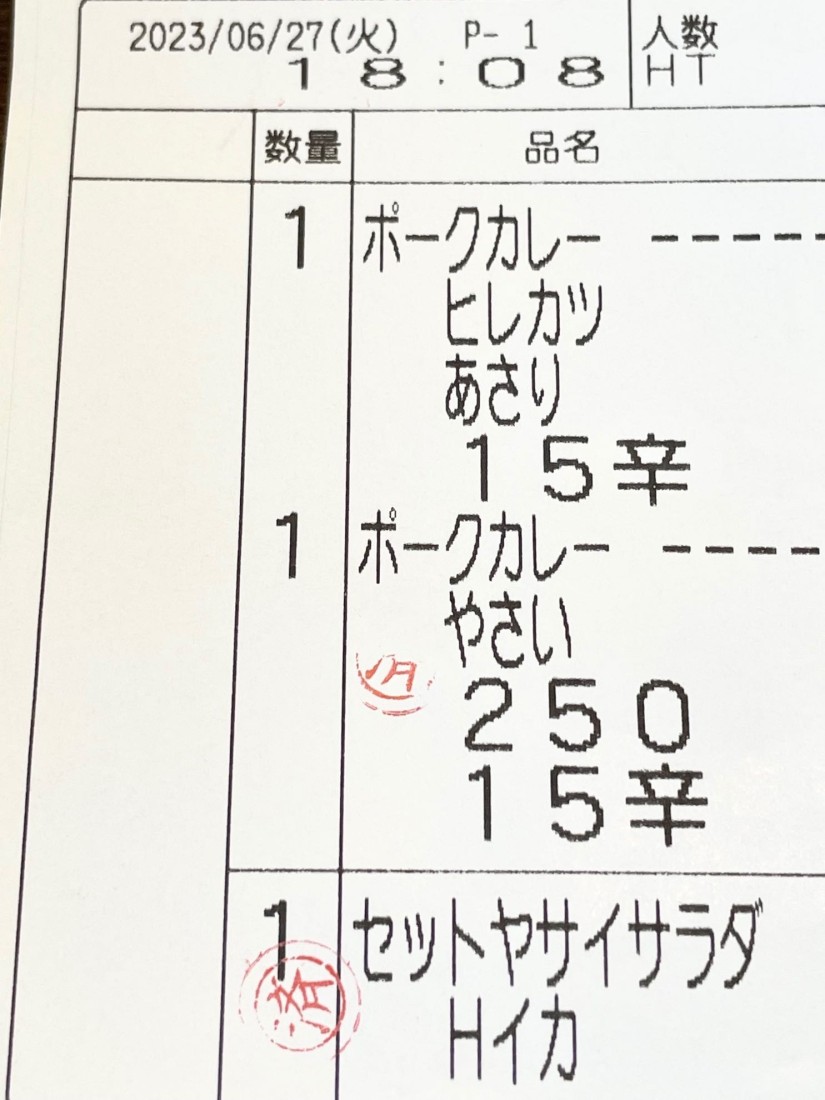 2023/06/27(火) P- 1 人数
18:08 HT
数量 品名
1 ポークカレー -----
ヒレカツ
あさり
15辛
1 ポークカレー ----
やさい
250
15辛
1 セットヤサイサラダ
済
Hイカ